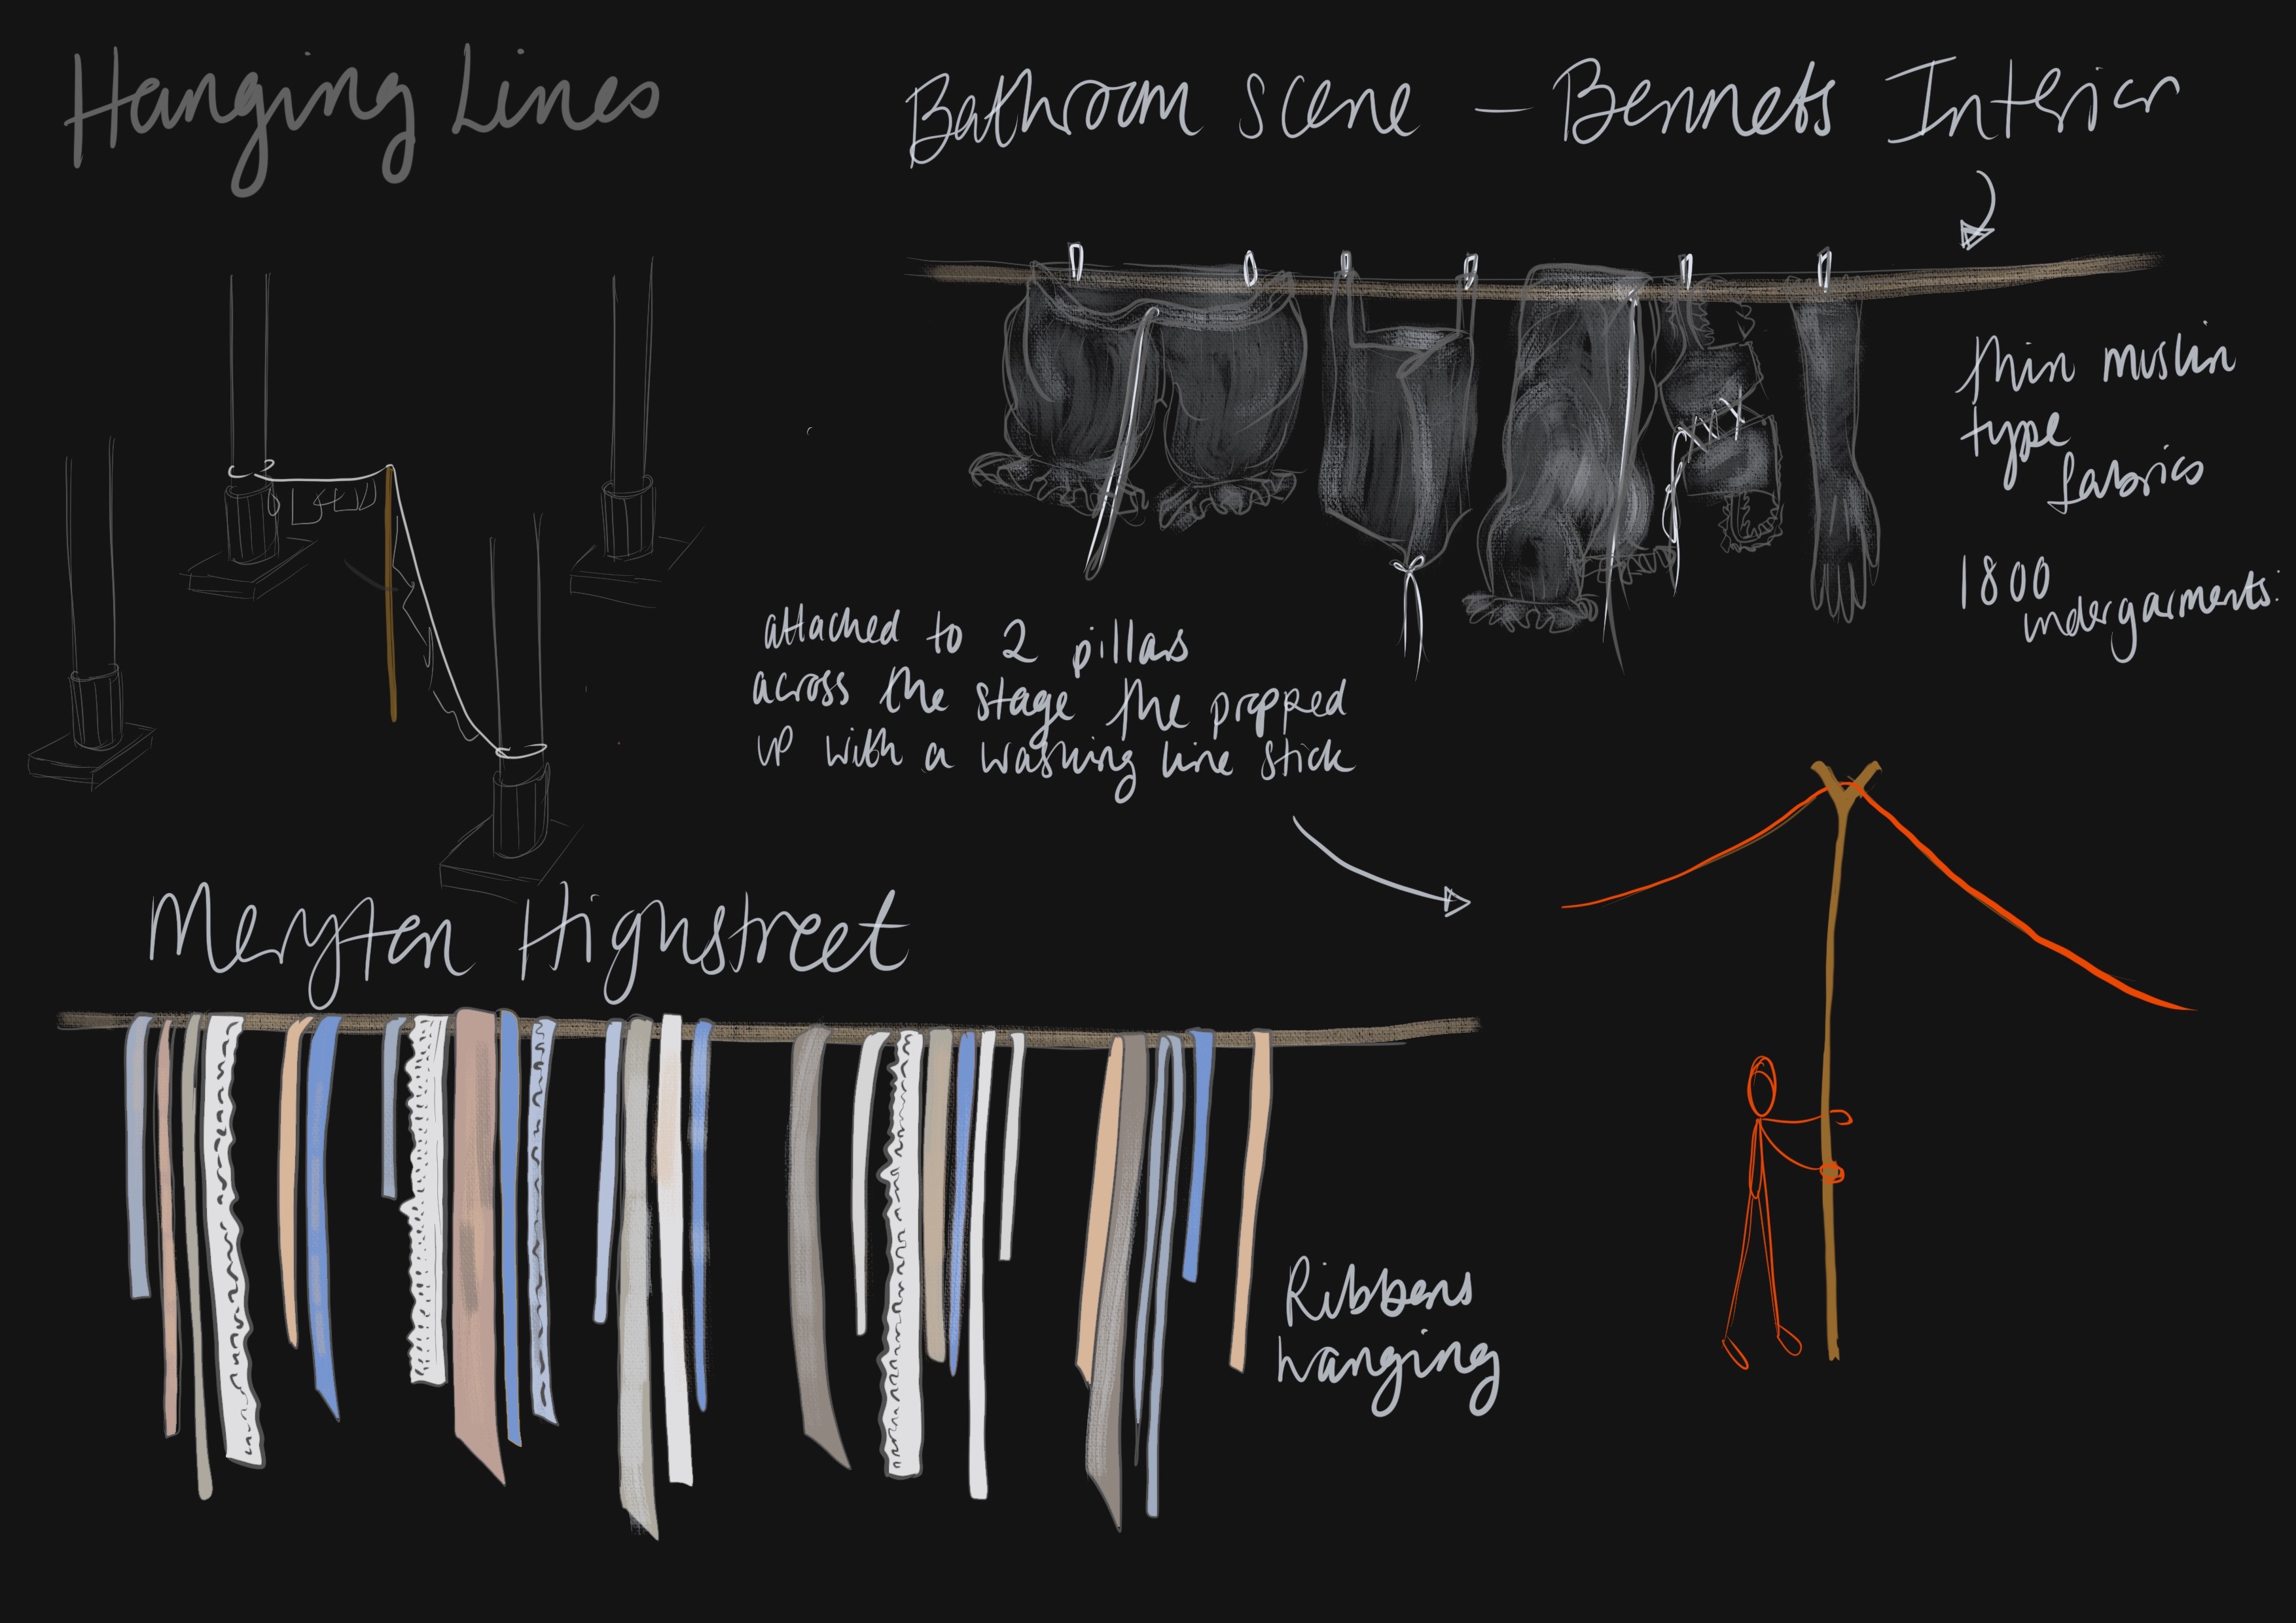 Hanging Lines
Bathroom Scene - Bennets Interior
thin muslin
type
fabrics
1800
undergarments.
attached to 2 pillars
across the stage the propped
up with a washing line stick
Meryton Highstreet
Ribbons
hanging